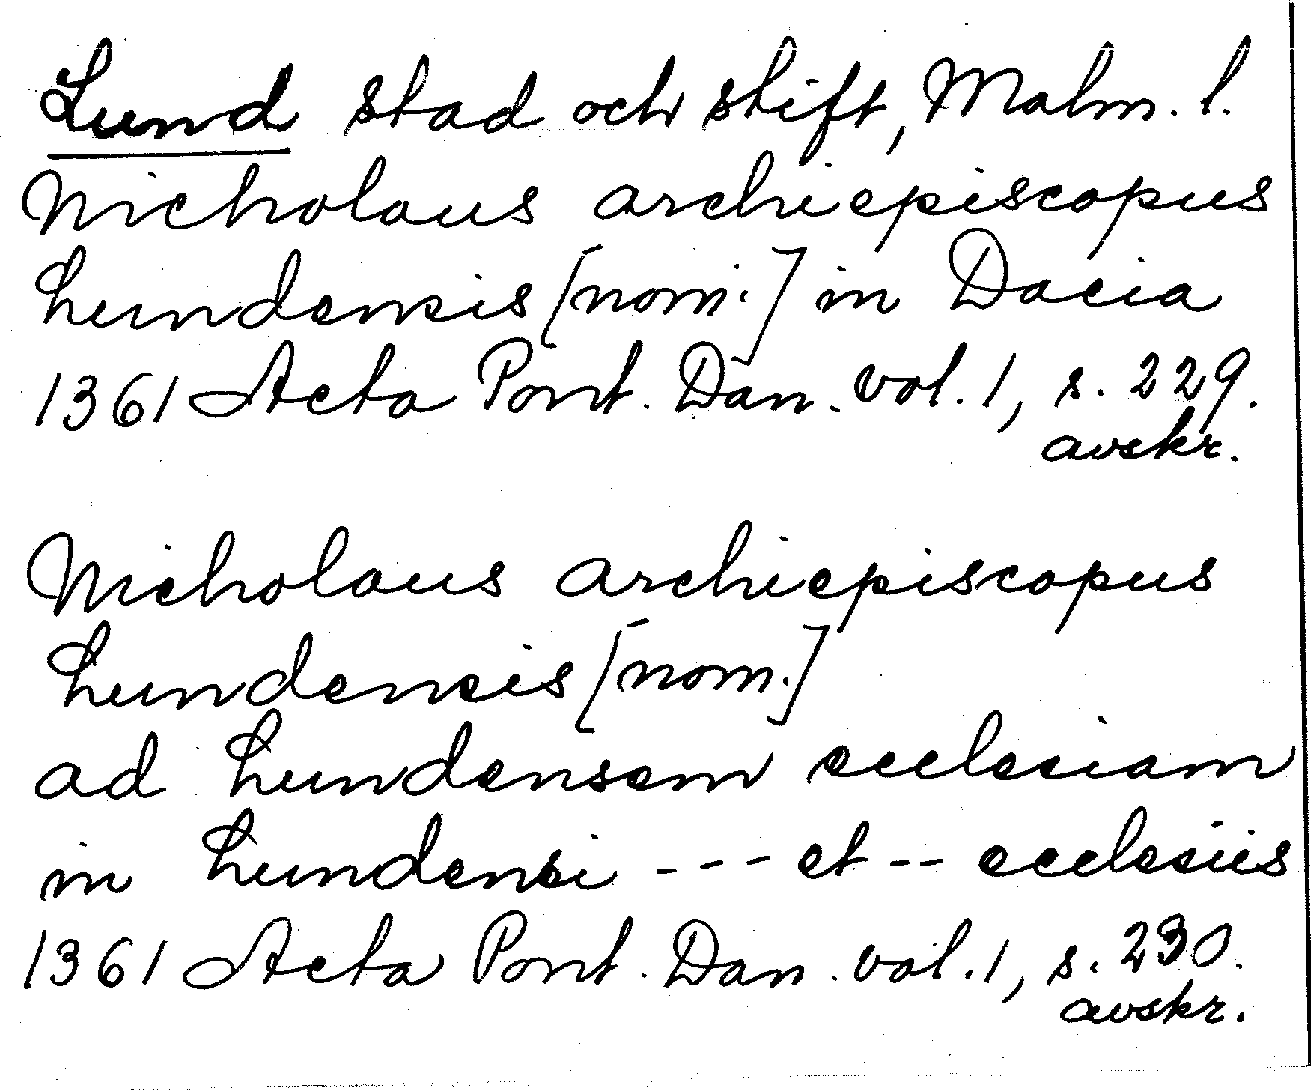 Lund stad och stift, Malm. l.
Nicholaus archiepiscopus
Lundensis [nom.] in Dacia
1361 Acta Pont. Dan. vol. 1, s. 229.
avskr.
Nicholaus archiepiscopus
Lundensis [nom.]
ad Lundensem ecclesiam
in Lundensi --- et -- ecclesiis
1361 Acta Pont. Dan. vol. 1, s. 230.
avskr.